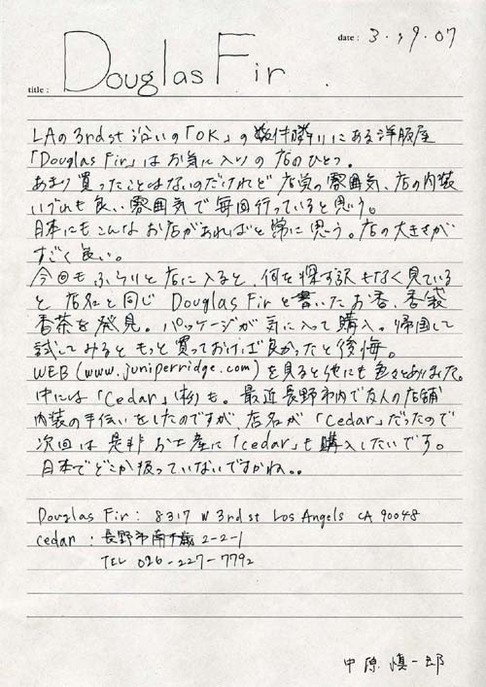 date: 3.19.07
title: Douglas Fir.
LAの3rd st 沿いの「OK」の数件隣りにある洋服屋
「Douglas Fir」はお気に入りの店のひとつ。
あまり買ったことはないのだけれど 店員の雰囲気、店の内装
いづれも良い雰囲気で毎回行っていると思う。
日本にもこんなお店があればと常に思う。店の大きさが
すごく良い。
今回もふらりと店に入ると、何を探す訳でもなく見ている
と 店名と同じ Douglas Fir と書いたお香、
香茶を発見。パッケージが気に入って購入。帰国して
試してみると もっと買っておけば良かったと後悔。
WEB (www.juniperridge.com) を見ると他にも色々とありました。
中には「Cedar」(杉)も。最近長野市内で友人の店舗
内装の手伝いをしたのですが 店名が「Cedar」だったので
次回は是非お土産に「cedar」も購入したいです。
日本でどこか扱っていないですかね。。
Douglas Fir : 8317 W 3rd st Los Angels CA 90048
cedar : 長野市南千歳 2-2-1
TEL 026-227-7792
中原 慎一郎